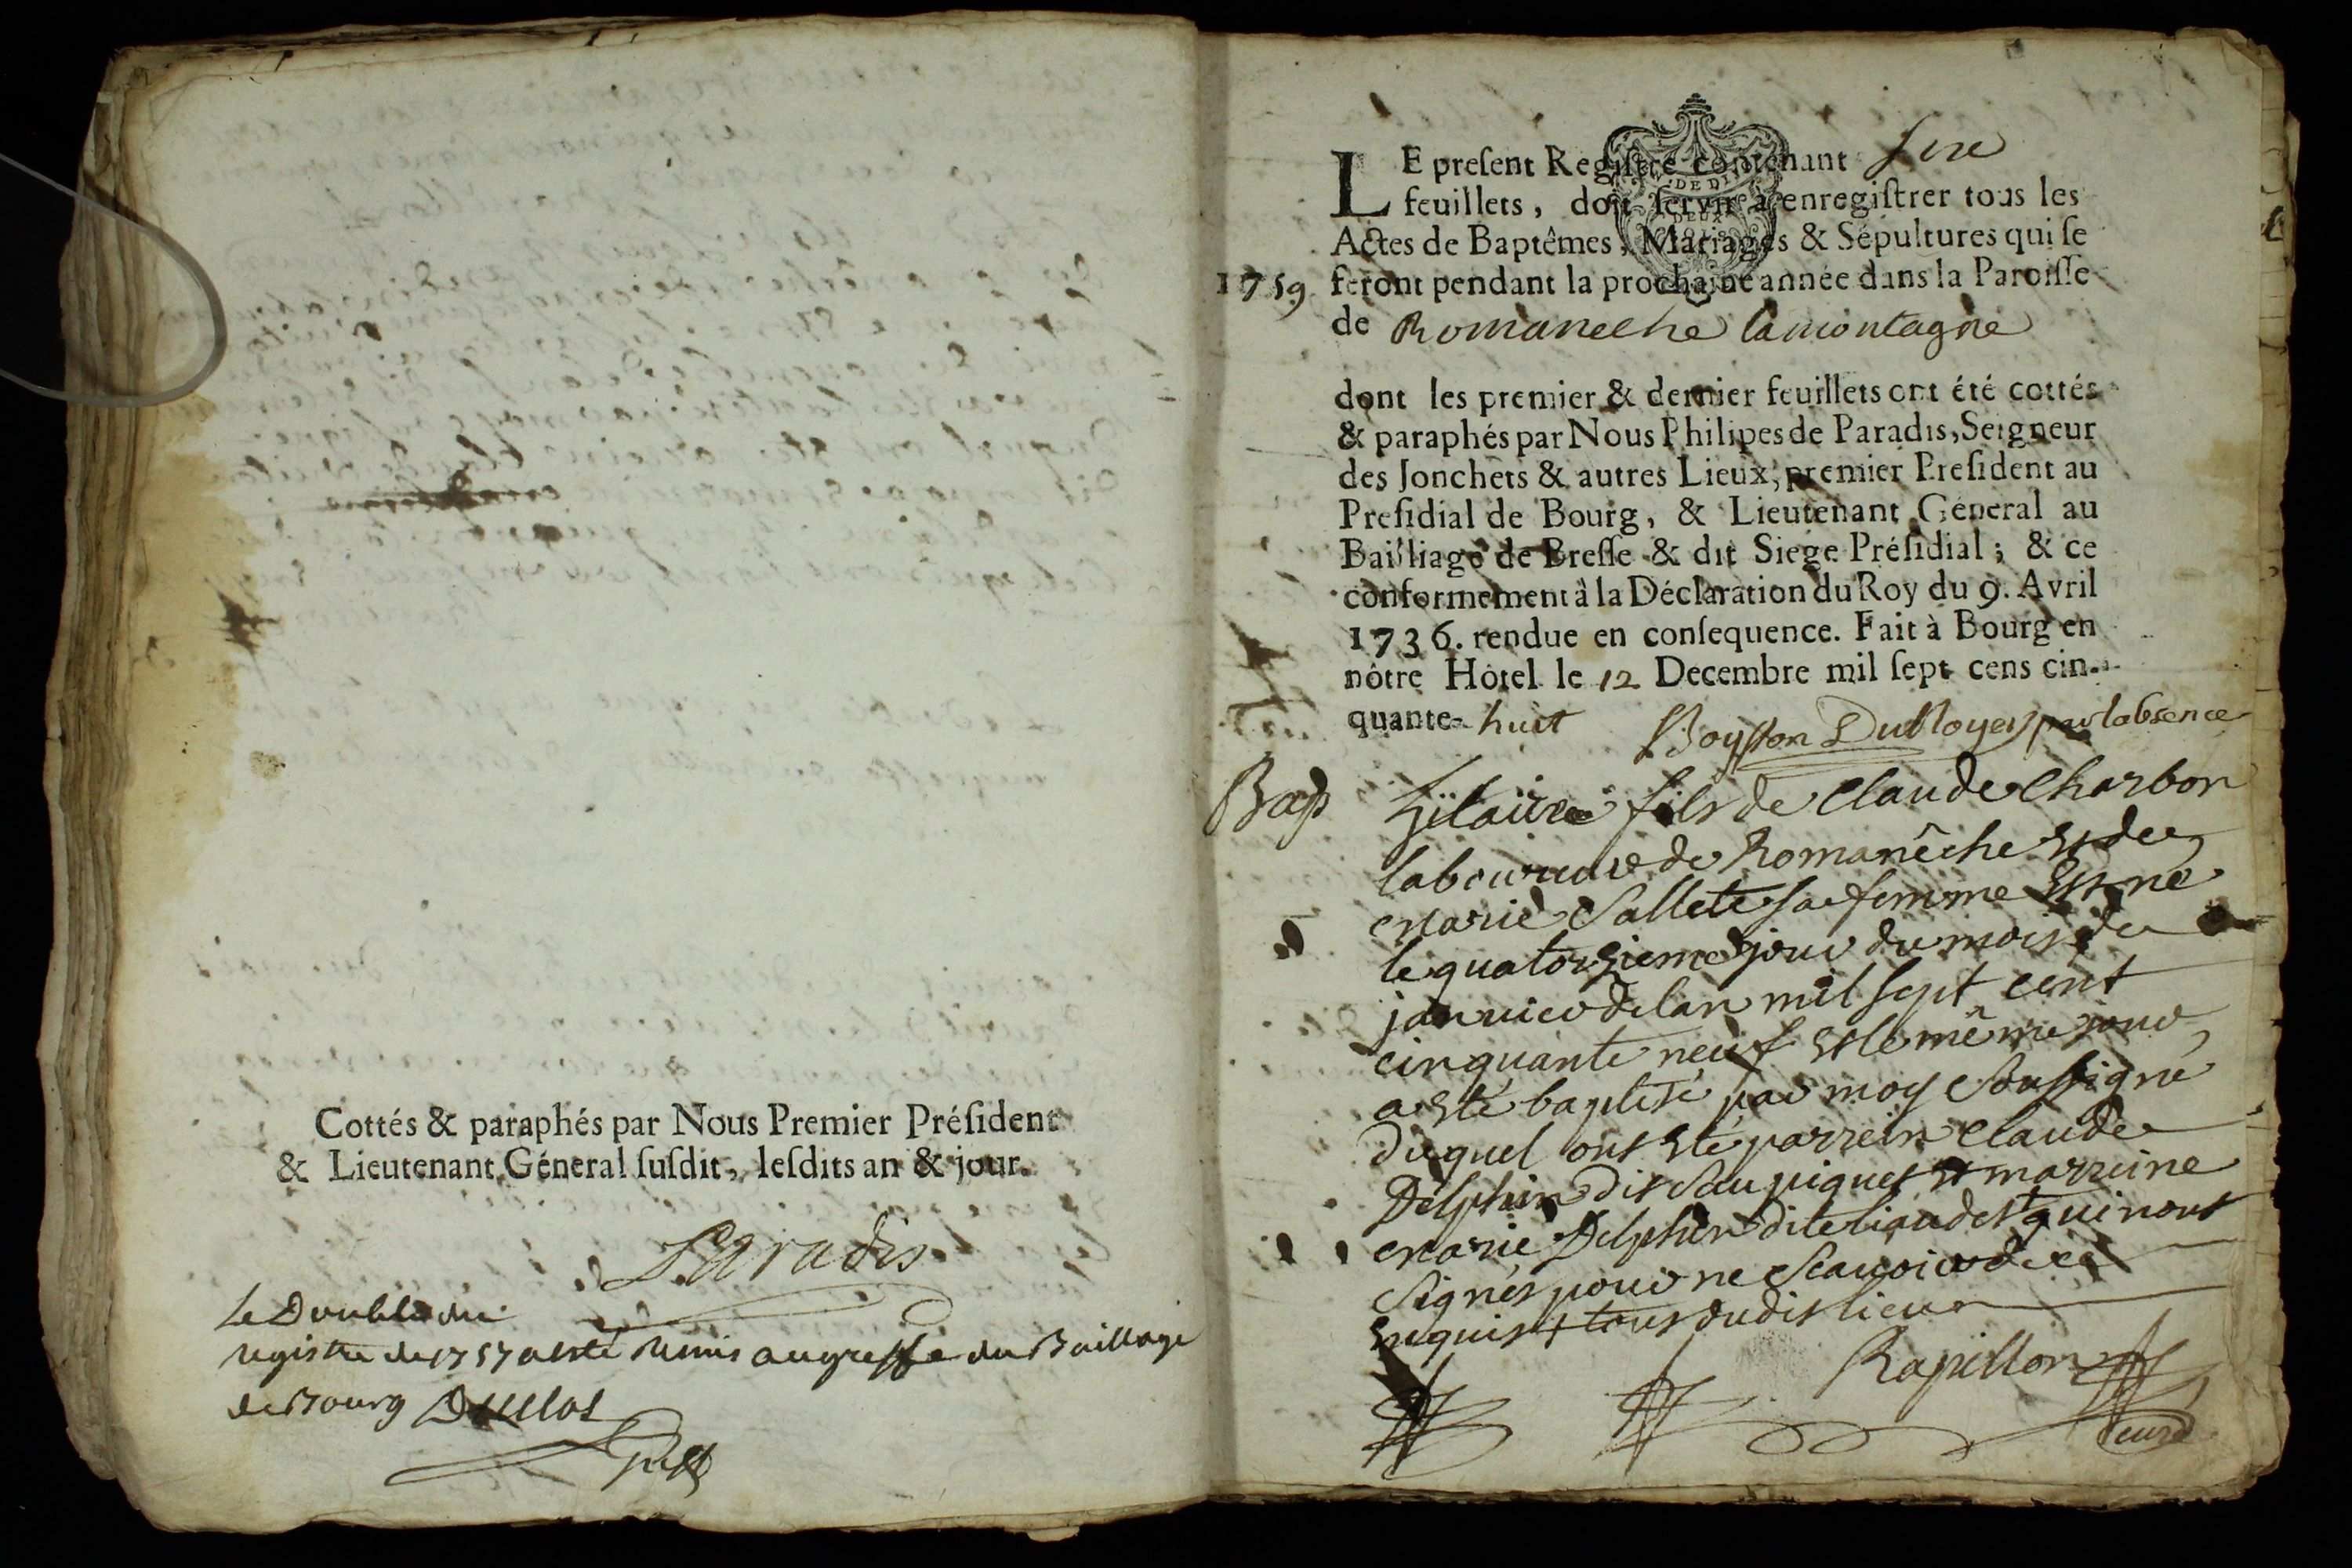 Cottés & paraphés par Nous Premier Préſident
& Lieutenant Géneral ſuſdit, leſdits an & jour.
Paradis
Le Double du
registre de 1757 a esté remis au greffe du Baillage
de Bourg Duclos
LE preſent Regiſtre contenant
feuillets, doit ſervir à enregiſtrer tous les
Actes de Baptêmes, Mariages & Sépultures qui ſe
1759 feront pendant la prochaine année dans la Paroiſſe
de Romaneche lamontagne
dont les premier & dernier feuillets ont été cottés
& paraphés par Nous Philipes de Paradis, Seigneur
des Jonchets & autres Lieux, premier Preſident au
Preſidial de Bourg, & Lieutenant Géneral au
Bailliage de Breſſe & dit Siege Préſidial ; & ce
conformement à la Déclaration du Roy du 9. Avril
1736. rendue en conſequence. Fait à Bourg en
nôtre Hôtel le 12 Decembre mil ſept cens cin-
quante- huit par labsence
Bap hilaire fils de Claude Charbon
laboureur de Romanêche et de
marie Sallete sa femme est né
le quatorzieme jour du mois de
janvier de lan mil sept cent
cinquante neuf et le même jour
a eté baptisé par moy soussigné
duquel ont eté parrein Claude
Delphin dit Saupiquet et marreine
marie Delphin dite qui nont
signés pour ne scavoir de ce
enquis + tous dudit lieu
Rapillon
curé